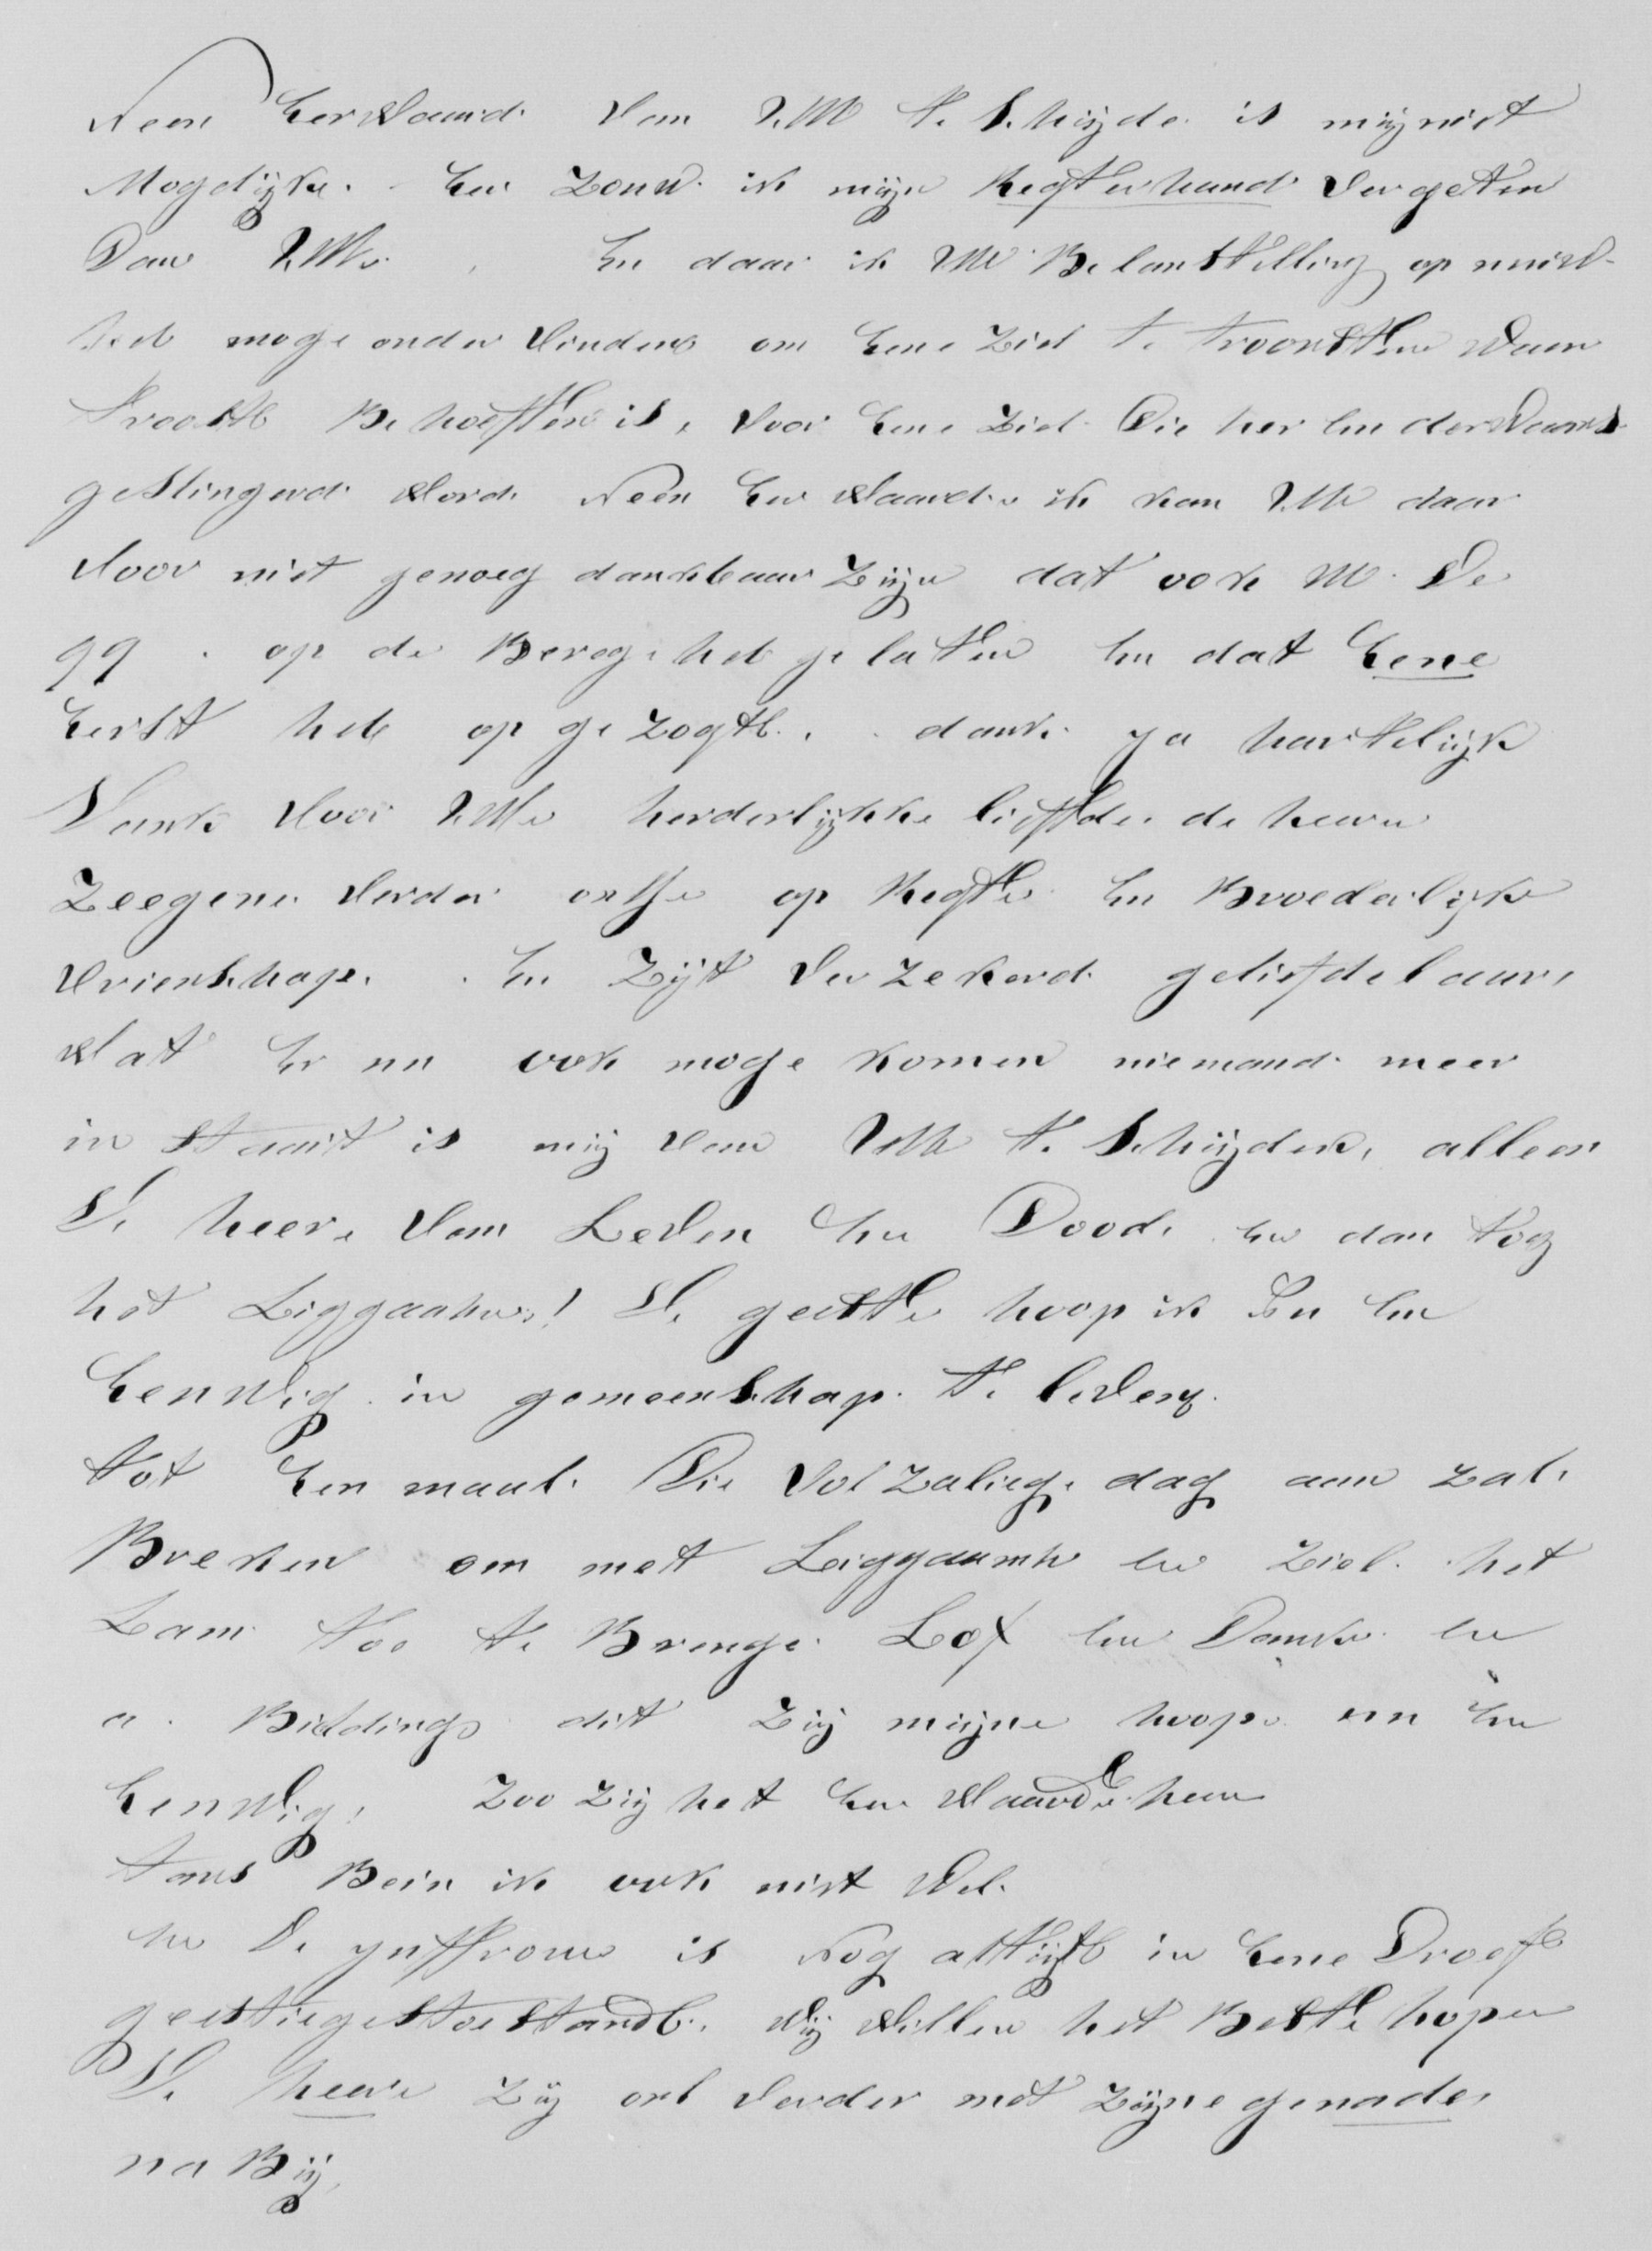 Neen Eerwaard. van UW te Schijde. is mij niet
Mogelijke. Eer Zouw. ik mijn Regterhand vergeten
Dan UWe. En daar ik UW Belanstelling op nuiw
heb moge onder vinden om Eene Ziel te troosten waar
troost Behoeften is, voor Eene Ziel Die her En derwaars
geslingerd word. Neen Eerwaarde ik kan UW daar
voor niet genoeg dankbaar Zijn dat ook UW. De
99. op de Berege heb gelaten En dat Eene
Eerst heb op ge Zogt. dank. ja hartelijk
Dank voor UWe herderlijkke liefde. de heere
Zeegene verder onse op Regte En Broederlijke
vrienschap. En Zijt ver Zekerd geliefde leeare
wat Er nu ook moge komen niemand meer
in staait is mij van UW te Schijden, alleen
De heere van Leven En Dood. En dan tog
het Liggaahm! De geeste hoop ik Nu En
Eeuwig in gemeenschap. te leven.
tot Een maal. Die vol zalieg. dag aan zal.
Breken om met Liggaamh en Ziel. het
Lam toe te Brenge. Lof En Dank en
a. Bidding dit Zij mijne hoope nu En
Eeuwig. Zoo Zij het Eer waarde heer
tans Bein ik ook niet Wel.
En De juffrouw is Nog altijt in Eene Droef
geestiege toestand. Wij Willen het Beste hopen
De heere Zij ons verder met Zijne genade
na Bij,